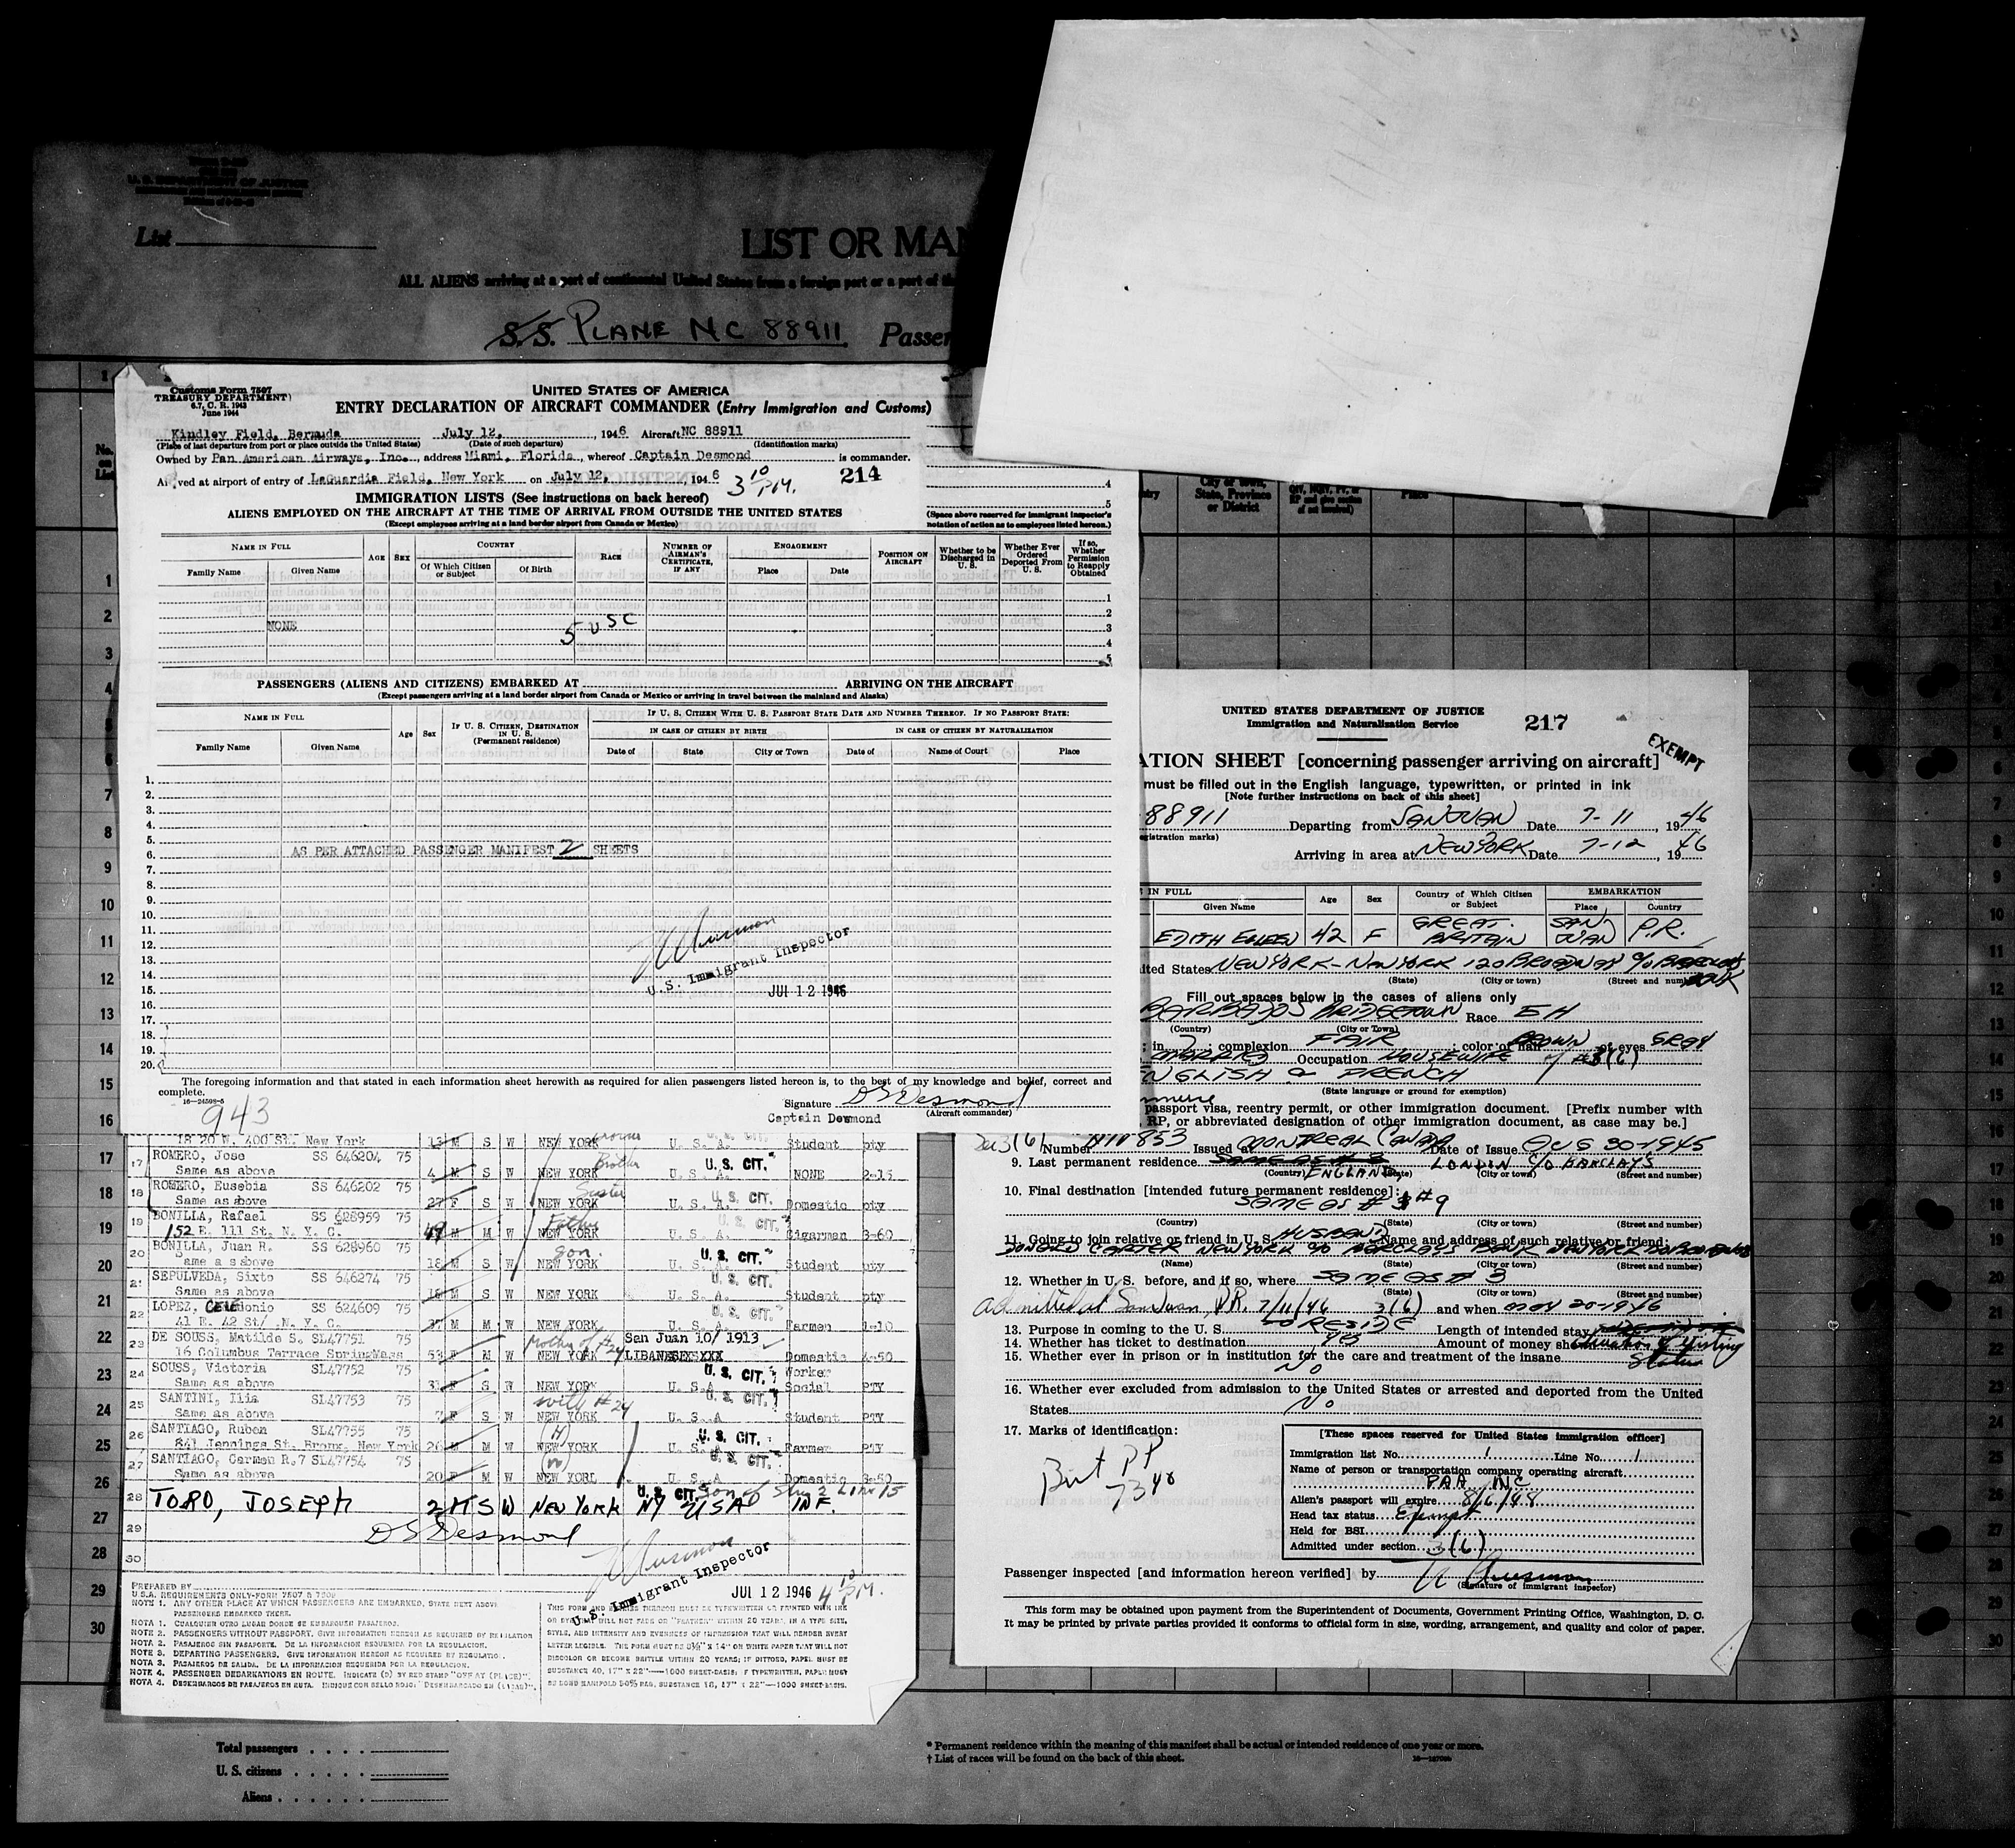 U. S. DEPARTMENT OF JUSTICE
List
LIST OR MAN
ALL ALIENS arriving at a port of continental United States from a foreign port or a port of the
S.S. PLANE NC 88911 Passen
Customs Form 7507
TREASURY DEPARTMENT
6.7, C. R. 1943
June 1944
UNITED STATES OF AMERICA
ENTRY DECLARATION OF AIRCRAFT COMMANDER (Entry Immigration and Customs)
Kindley Field, Bermuda July 12, , 1946 Aircraft NC 88911
(Place of last departure from port or place outside the United States) (Date of such departure) (Identification marks)
Owned by Pan American Airways, Inc. , address Miami, Florida , whereof Captain Desmond is commander.
Arrived at airport of entry of LaGuardia Field, New York on July 12, 1946 3 10 P.M. 214
IMMIGRATION LISTS (See instructions on back hereof)
ALIENS EMPLOYED ON THE AIRCRAFT AT THE TIME OF ARRIVAL FROM OUTSIDE THE UNITED STATES
(Except employees arriving at a land border airport from Canada or Mexico)
4
5
(Space above reserved for immigrant inspector's notation of action as to employees listed hereon.)
NAME IN FULL
Family Name Given Name
AGE SEX
COUNTRY
Of Which Citizen or Subject Of Birth
RACE
NUMBER OF AIRMAN'S CERTIFICATE, IF ANY
ENGAGEMENT
Place Date
POSITION ON AIRCRAFT
Whether to be Discharged in U. S.
Whether Ever Ordered Deported From U. S.
If so, Whether Permission to Reapply Obtained
1
2
NONE 5 USC 3
4
5
PASSENGERS (ALIENS AND CITIZENS) EMBARKED AT ARRIVING ON THE AIRCRAFT
(Except passengers arriving at a land border airport from Canada or Mexico or arriving in travel between the mainland and Alaska)
NAME IN FULL
Family Name Given Name
Age Sex
IF U. S. CITIZEN, DESTINATION IN U. S.
(Permanent residence)
IF U. S. CITIZEN WITH U. S. PASSPORT STATE DATE AND NUMBER THEREOF. IF NO PASSPORT STATE:
IN CASE OF CITIZEN BY BIRTH IN CASE OF CITIZEN BY NATURALIZATION
Date of State City or Town Date of Name of Court Place
1.
2.
3.
4.
5.
6. AS PER ATTACHED PASSENGER MANIFEST 2 SHEETS
7.
8.
9.
10.
11.
12.
13.
14.
15.
16.
17.
18.
19.
20.
U.S. Immigrant Inspector
JUL 12 1946
The foregoing information and that stated in each information sheet herewith as required for alien passengers listed hereon is, to the best of my knowledge and belief, correct and
complete.
16—24598-5
943
Signature DS Desmond
(Aircraft commander)
Captain Desmond
18 20 W. 400 St. New York 13 M S W NEW YORK U. S. A. Student pty
17 ROMERO, Jose SS 646204 75 Brother U. S. CIT.
Same as above 4 M S W NEW YORK U. S. A. NONE 2-15
18 ROMERO, Eusebia SS 646202 75 Sister U. S. CIT.
Same as above 27 F S W NEW YORK U. S. A. Domestic pty
19 BONILLA, Rafael SS 628959 75 Father U. S. CIT.
152 E. 111 St. N. Y. C. 49 M M W NEW YORK U. S. A. Cigarman 3-60
20 BONILLA, Juan R. SS 628960 75 Son. U. S. CIT.
ame a s above 18 M S W NEW YORK U. S. A. Student pty
21 SEPULVEDA, Sixto SS 646274 75 U. S. CIT.
Same as above M S W NEW YORK U. S. A. Student pty
22 LOPEZ, Celedonio SS 624609 75 U. S. CIT.
41 E. 42 St/ .N. Y. C. 37 M M W NEW YORK U. S. A. Farmen 1-10
23 DE SOUSS, Matilde S. SL47751 75 Mother of #24 San Juan 10/ 1913
16 Columbus Terrace SpringMass 53 F W NEW YORK Domestic 4-50
24 SOUSS, Victoria SL47752 75 U. S. CIT. Worker
Same as above 31 F S W NEW YORK U. S. A Social PTY
25 SANTINI, Ilia SL47753 75 with #24 U. S. CIT.
Same as above 7 F S W NEW YORK U. S. A Student PTY
26 SANTIAGO, Ruben SL47755 75 (H) U. S. CIT.
841 Jennings St. Bronx, New York 26 M M W NEW YORK U. S. A Farmer PTY
27 SANTIAGO, Carmen R.7 SL47754 75 (W) U. S. CIT.
Same as above 20 F M W NEW YORL U. S. A Domestic 3-50
U. S. CIT. Son of Sheet 2 Line 15
28 TORO, JOSEPH 2 M S W NEW YORK NY USA INF.
29 DS Desmond
30
U.S. Immigrant Inspector
JUL 12 1946 4 10 P.M.
PREPARED BY
U.S.A. REQUIREMENTS ONLY-FORM 7507 & 7509
NOTE 1. ANY OTHER PLACE AT WHICH PASSENGERS ARE EMBARKED, STATE NEXT ABOVE
PASSENGERS EMBARKED THERE.
NOTA 1. CUALQUIER OTRO LUGAR DONDE SE EMBARQUEN PASAJEROS.
NOTE 2. PASSENGERS WITHOUT PASSPORT, GIVE INFORMATION HEREON AS REQUIRED BY REGULATION
NOTA 2. PASAJEROS SIN PASAPORTE. DE LA INFORMACION REQUERIDA POR LA REGULACION.
NOTE 3. DEPARTING PASSENGERS. GIVE INFORMATION HEREON AS REQUIRED BY REGULATION.
NOTA 3. PASAJEROS DE SALIDA. DE LA INFORMACION REQUERIDA POR LA REGULACION.
NOTE 4. PASSENGER DEBARKATIONS EN ROUTE. INDICATE (D) BY RED STAMP "OFF AT (PLACE)".
NOTA 4. DESEMBARCOS DE PASAJEROS EN RUTA. INDIQUE CON SELLO ROJO: "DESEMBARCADO EN (LUGAR)".
THIS FORM AND ENTRIES THEREON MUST BE TYPEWRITTEN OR PRINTED WITH INK
OR DYE THAT WILL NOT FADE OR "FEATHER" WITHIN 20 YEARS, IN A TYPE SIZE,
STYLE, AND INTENSITY AND EVENNESS OF IMPRESSION THAT WILL RENDER EVERY
LETTER LEGIBLE. THE FORM MUST BE 8½" X 14" ON WHITE PAPER THAT WILL NOT
DISCOLOR OR BECOME BRITTLE WITHIN 20 YEARS; IF DITTOED, PAPER MUST BE
SUBSTANCE 40, 17" X 22"—1000 SHEET-BASIS; IF TYPEWRITTEN, PAPER MUST
BE BOND MANIFOLD 50% RAG, SUBSTANCE 16, 17" X 22"—1000 SHEET-BASIS.
Total passengers
U. S. citizens
Aliens
City or Town, State, Province or District
UNITED STATES DEPARTMENT OF JUSTICE
Immigration and Naturalization Service
217
EXEMPT
ATION SHEET [concerning passenger arriving on aircraft]
must be filled out in the English language, typewritten, or printed in ink
[Note further instructions on back of this sheet]
88911 Departing from SAN JUAN Date 7-11 , 1946
egistration marks) Arriving in area at NEW YORK Date 7-12 , 1946
E IN FULL
Given Name Age Sex Country of Which Citizen or Subject
EMBARKATION
Place Country
EDITH EILEEN 42 F GREAT BRITAIN SAN JUAN P.R.
ited States NEW YORK - NEW YORK 120 BROADWAY c/o BARCLAYS BANK
(State) (City or town) (Street and number)
Fill out spaces below in the cases of aliens only
BARBADOS BRIDGETOWN Race EH
(Country) (City or Town)
; in 7 ; complexion FAIR ; color of hair BROWN of eyes GRAY
MARRIED Occupation HOUSEWIFE of #3(6)
ENGLISH & FRENCH
(State language or ground for exemption)
passport visa, reentry permit, or other immigration document. [Prefix number with
RP, or abbreviated designation of other immigration document, as case may be.]
Sec 3(6) Number 853 Issued at MONTREAL CANADA Date of Issue AUG 30-1945
9. Last permanent residence ENGLAND LONDON c/o BARCLAYS
(Country) (State) (City or town) (Street and number)
10. Final destination [intended future permanent residence]:
SAME AS #9
(Country) (State) (City or town) (Street and number)
11. Going to join relative or friend in U. S. HUSBAND Name and address of such relative or friend:
DONALD CARTER NEW YORK c/o BARCLAYS BANK NEW YORK 120 BROADWAY
(Name) (State) (City or town) (Street and number)
12. Whether in U. S. before, and if so, where SAME AS # 3
(State) (City or town) (Street and number)
Admitted at San Juan P.R. 7/11/46 3(6) and when MAY 20-1946
13. Purpose in coming to the U. S. TO RESIDE Length of intended stay
14. Whether has ticket to destination YES Amount of money shown
duration of visiting status
15. Whether ever in prison or in institution for the care and treatment of the insane
NO
16. Whether ever excluded from admission to the United States or arrested and deported from the United
States. NO
17. Marks of identification:
Brit PP
7340
[These spaces reserved for United States immigration officer]
Immigration list No. 1 Line No. 1
Name of person or transportation company operating aircraft
PAA INC
Alien's passport will expire 8/6/48
Head tax status Exempt
Held for BSI
Admitted under section 3(6)
Passenger inspected [and information hereon verified] by
(Signature of immigrant inspector)
This form may be obtained upon payment from the Superintendent of Documents, Government Printing Office, Washington, D. C.
It may be printed by private parties provided it conforms to official form in size, wording, arrangement, and quality and color of paper.
* Permanent residence within the meaning of this manifest shall be actual or intended residence of one year or more.
† List of races will be found on the back of this sheet.